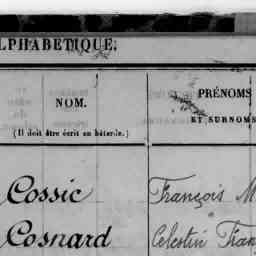 LPHABETIQUE.
NOM. PRÉNOMS
ET SURNOMS
(Il doit être écrit en bâtarde.)
Cossic François M
Cosnard Celestin Fran